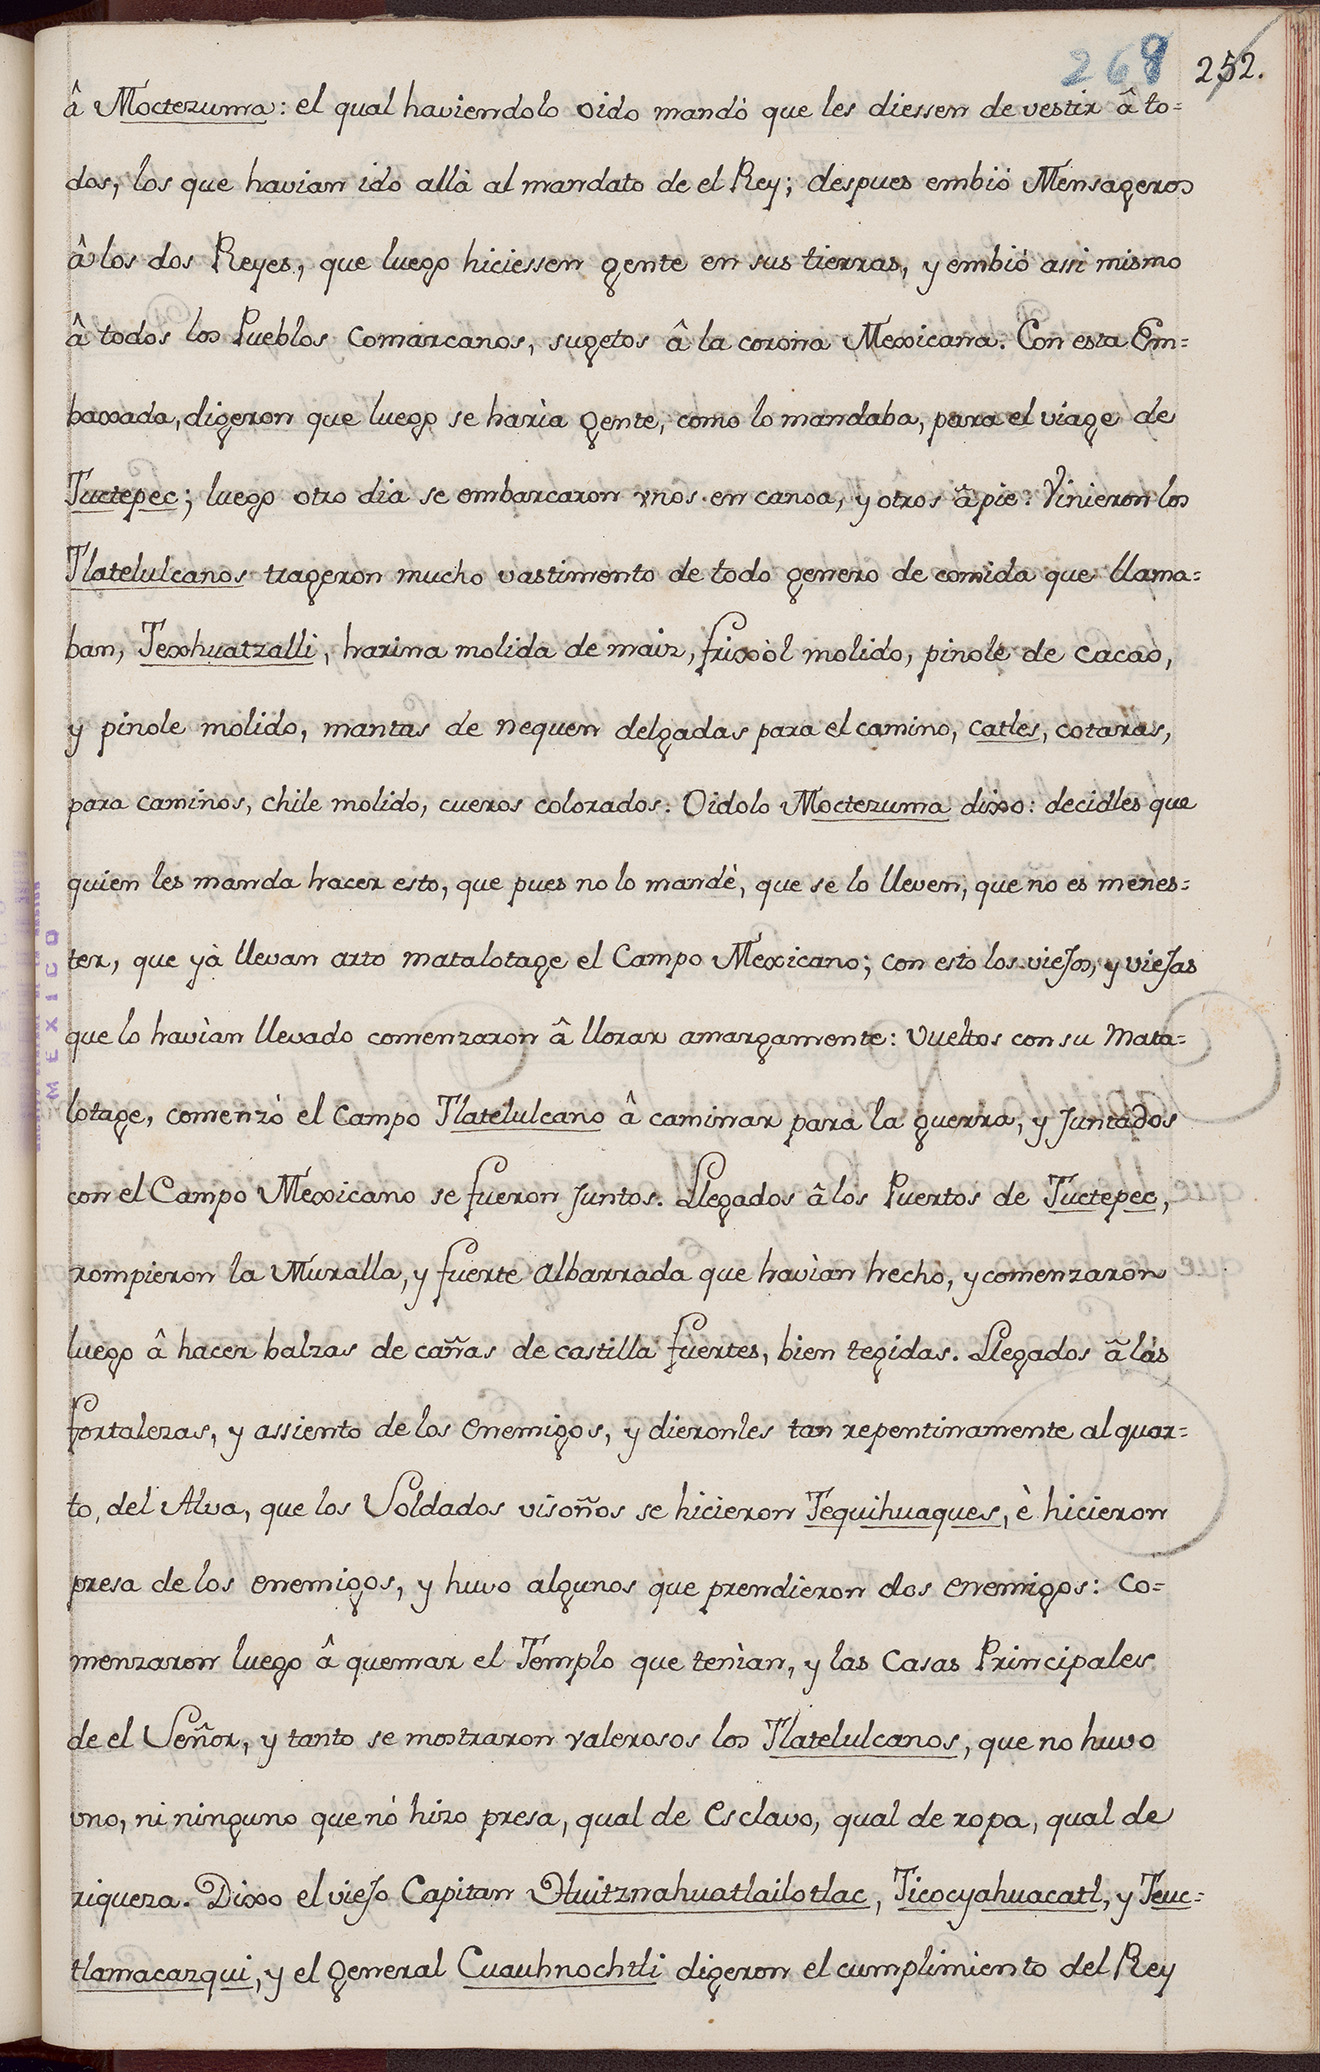 268 252.
â Moctezuma: el qual haviendolo oido mandò que les diessen de vestir â to=
dos, los que havian ido allà al mandato de el Rey; despues embiò Mensageros
â los dos Reyes, que luego hiciessen gente en sus tierras, y embiò assi mismo
â todos los Pueblos comarcanos, sugetos â la corona Mexicana. Con esta Em=
baxada, digeron que luego se harìa gente, como lo mandaba, para el viage de
Tuctepec; luego otro dia se embarcaron vnos en canoa, y otros â pie. Vinieron los
Tlatelulcanos trageron mucho vastimento de todo genero de comida que llama=
ban, Texhuatzalli, harina molida de maiz, frixòl molido, pinole de cacao,
y pinole molido, mantas de nequen delgadas para el camino, catles, cotaras,
para caminos, chile molido, cueros colorados. Oidolo Moctezuma dixo: decidles que
quien les manda hacer esto, que pues no lo mandè, que se lo lleven, que no es menes=
ter, que yà llevan arto matalotage el Campo Mexicano; con esto los viejos, y viejas
que lo havìan llevado comenzaron â llorar amargamente: Vueltos con su Mata=
lotage, comenzò el Campo Tlatelulcano â caminar para la guerra, y juntados
con el Campo Mexicano se fueron juntos. Llegados â los Puertos de Tuctepec,
rompieron la Muralla, y fuerte albarrada que havìan hecho, y comenzaron
luego â hacer balzas de cañas de castilla fuertes, bien tegidas. Llegados â las
fortalezas, y assiento de los enemigos, y dieronles tan repentinamente al quar=
to, del Alva, que los Soldados visoños se hicieron Tequihuaques, è hicieron
presa de los enemigos, y huvo algunos que prendieron dos enemigos: co=
menzaron luego â quemar el Templo que tenìan, y las Casas Principales
de el Señor, y tanto se mostraron valerosos los Tlatelulcanos, que no huvo
vno, ni ninguno que nò hizo presa, qual de esclavo, qual de ropa, qual de
riqueza. Dixo el viejo Capitan Huitznahuatlailotlac, Ticocyahuacatl, y Teuc=
tlamacazqui, y el general Cuauhnochtli digeron el cumplimiento del Rey
MEXICO